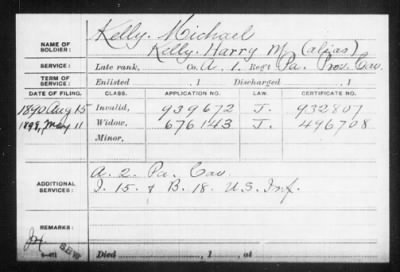 Kelly, Michael
NAME OF SOLDIER: Kelly, Harry M (alias)
SERVICE: Late rank, Co. A, 1, Reg't Pa. Prov. Cav.
TERM OF SERVICE: Enlisted , 1 Discharged , 1
DATE OF FILING. CLASS. APPLICATION NO. LAW. CERTIFICATE NO.
1890 Aug 15 Invalid, 939672 J. 932807
1898, May 11 Widow, 676143 J. 496708
Minor,
ADDITIONAL SERVICES: A. 2. Pa. Cav.
I. 15. & B. 18. U.S. Inf.
REMARKS:
Died , 1 , at